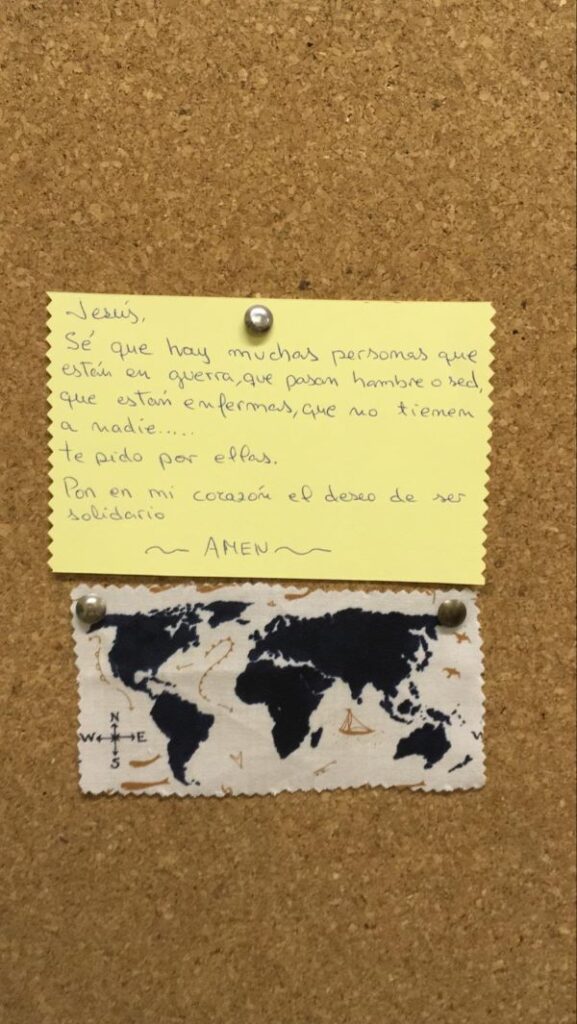 Jesús,
Sé que hay muchas personas que
están en guerra, que pasan hambre o sed,
que están enfermas, que no tienen
a nadie.....
te pido por ellas.
Pon en mi corazón el deseo de ser
solidario
~ AMEN ~
N
W E
S
W